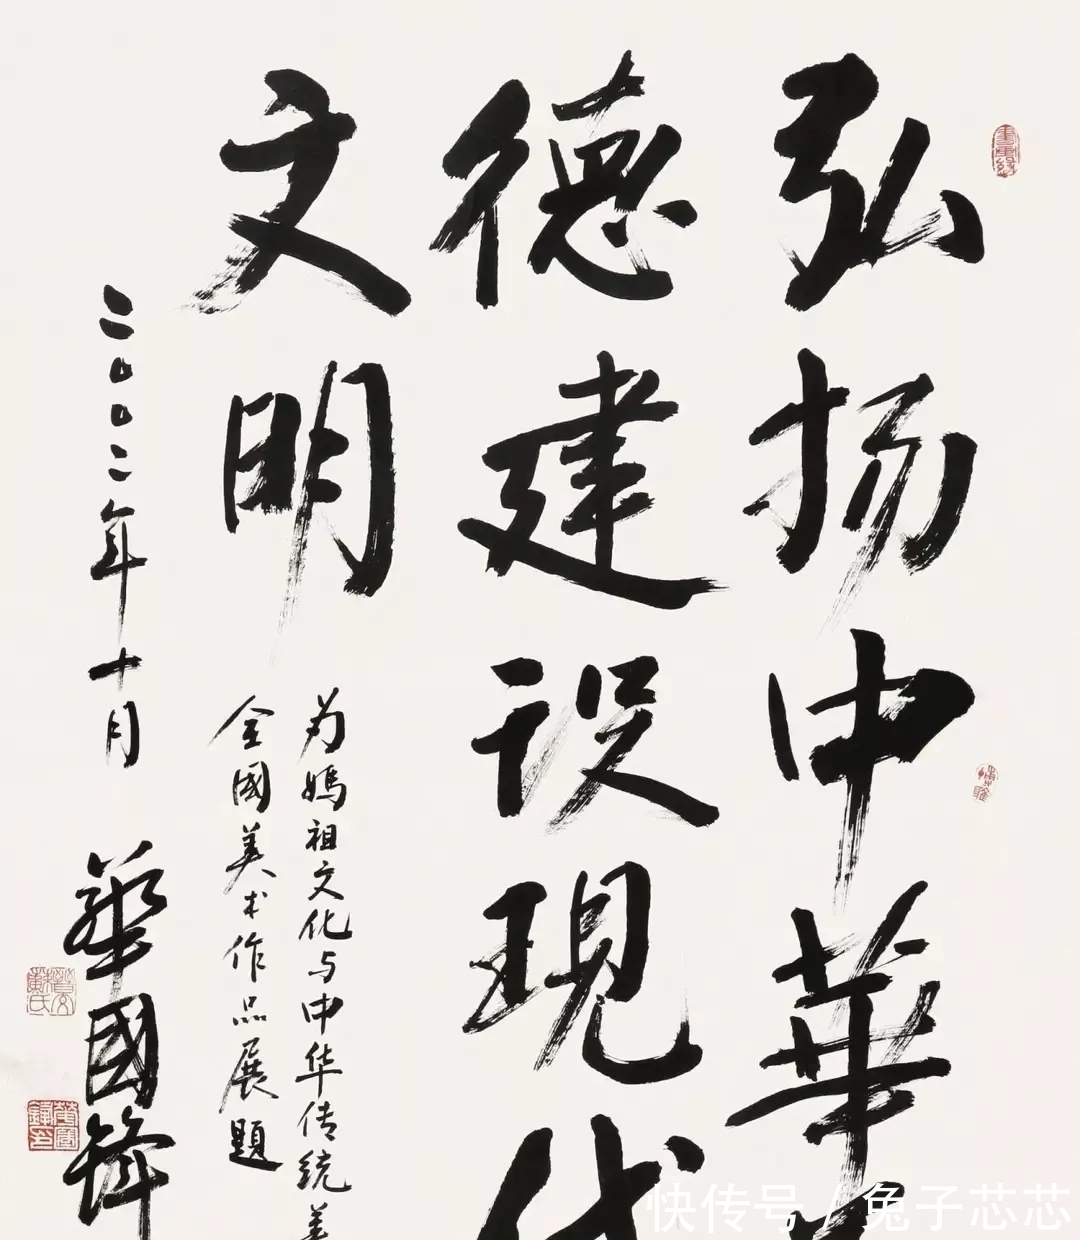 弘扬中華
德建设現代
文明
为媽祖文化与中华传统美
全國美术作品展題
二〇〇二年十月
華國鋒
快传号 / 兔子芯芯